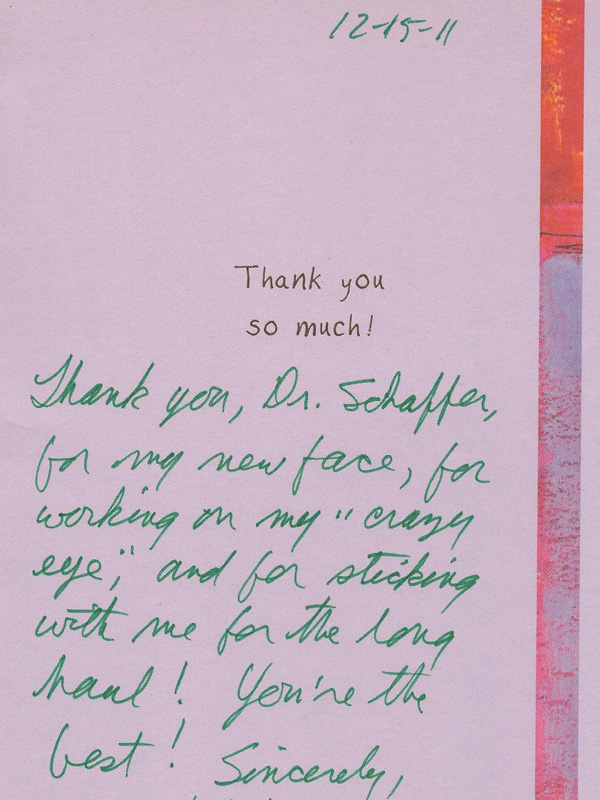 12-15-11
Thank you
so much!
Thank you, Dr. Schaffer,
for my new face, for
working on my "crazy
eye", and for sticking
with me for the long
haul! You're the
best! Sincerely,